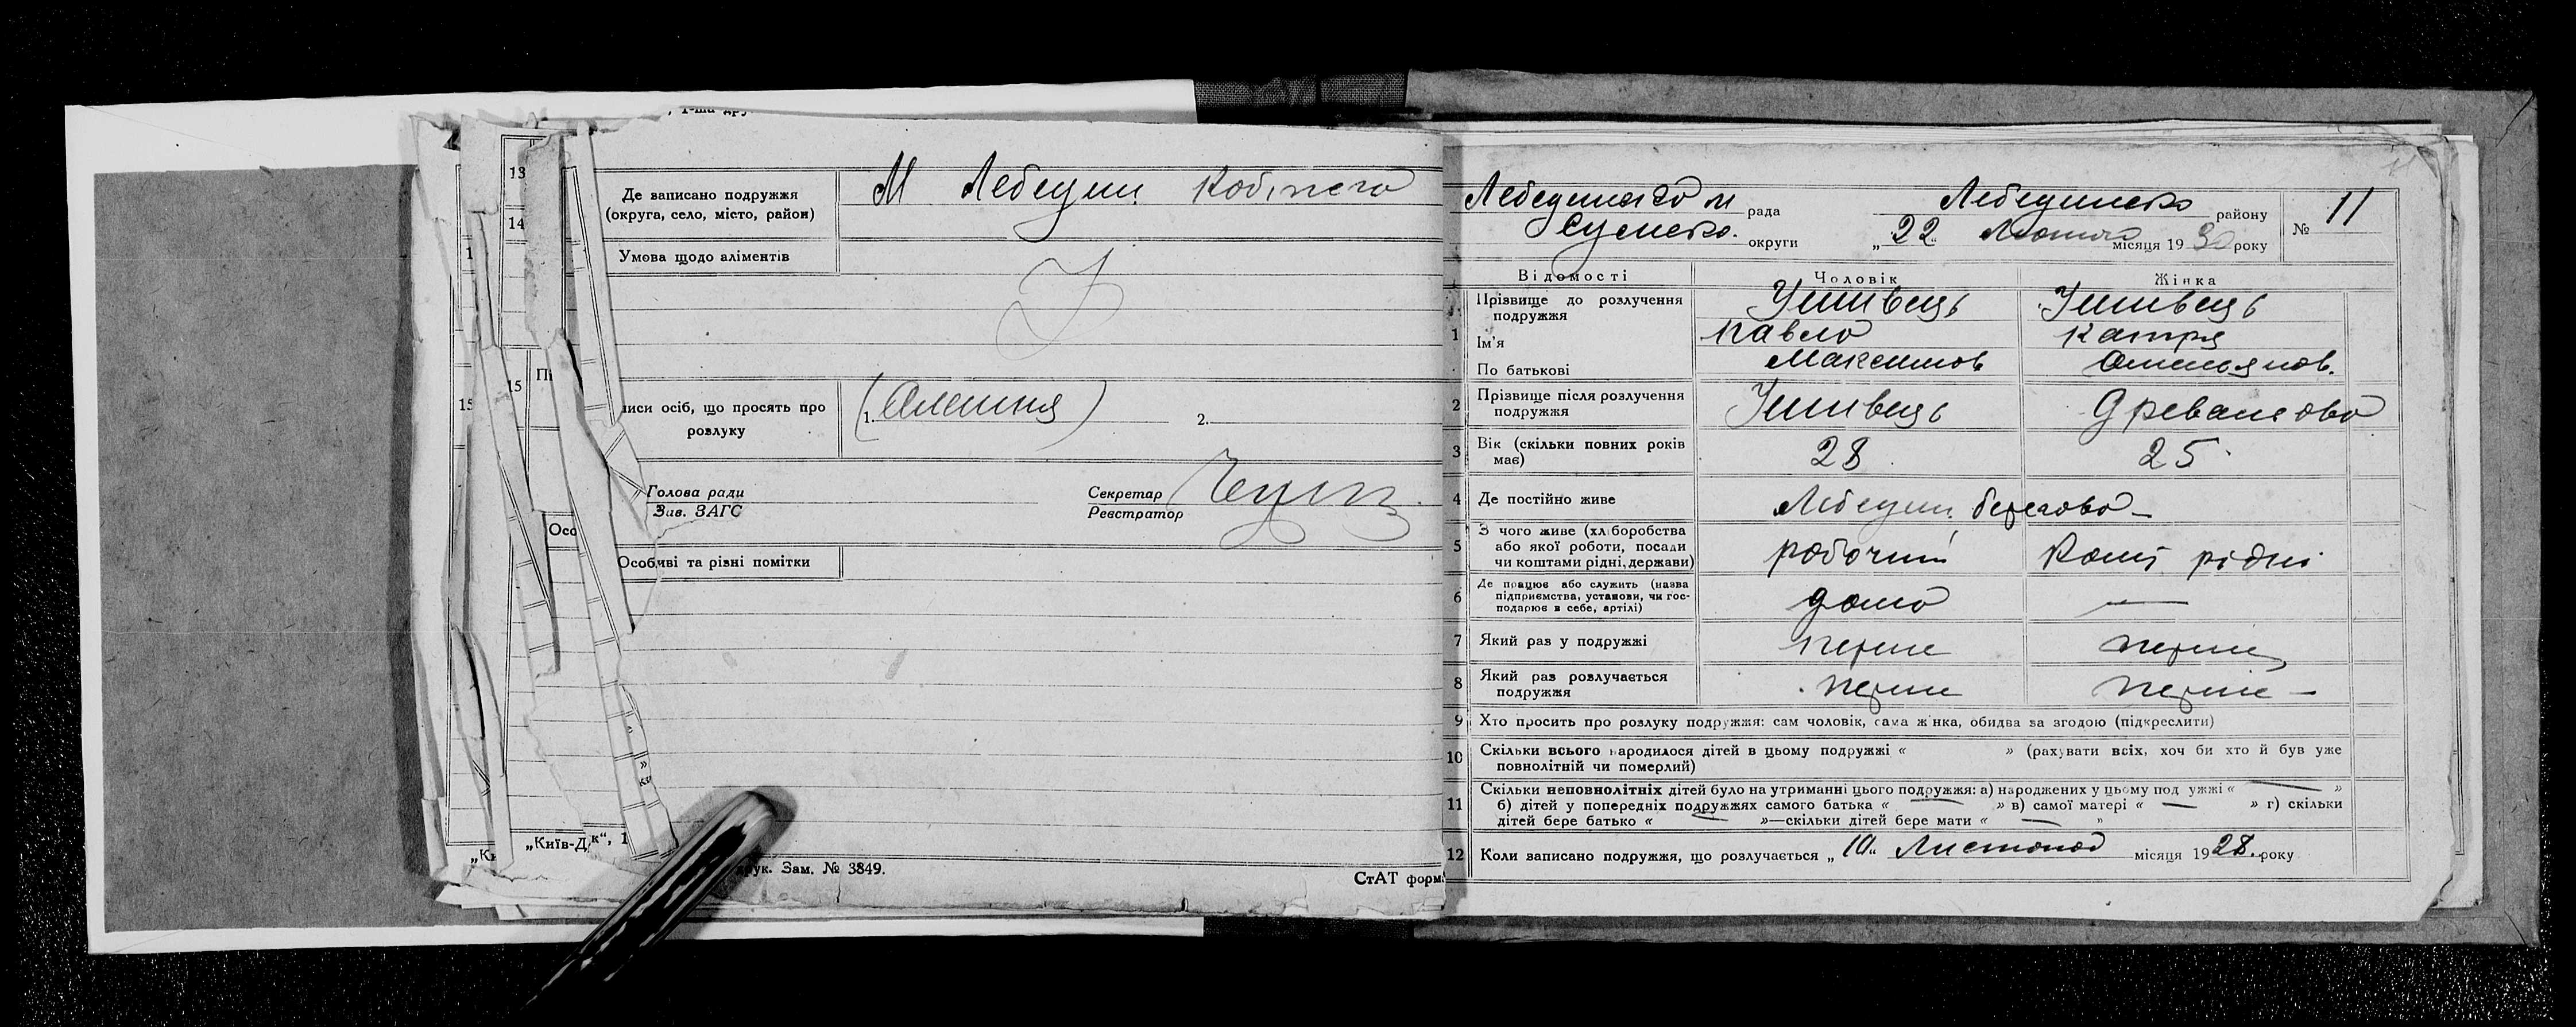 Де записано подружжя
(округа, село, місто, район)
М Лебедин
Умова щодо аліментів
иси осіб, що просять про
розлуку
1.
2.
Голова ради
Зав. ЗАГС
Секретар
Реєстратор
Особиві та різні помітки
13
14
15
15
Осо
„Київ-Д
к“, 1
рук. Зам. № 3849.
СтАТ форм.
рада
Лебединсько району
№ 11
Сумсько. округи
„22“ Лютого місяця 1930 року
Відомості
Чоловік
Жінка
1
Прізвище до розлучення
подружжя
Ім'я
Павло
Катря
По батькові
Максимов
Омелянов.
2
Прізвище після розлучення
подружжя
3
Вік (скільки повних років
має)
28
25
4
Де постійно живе
Лебедин берегова
5
З чого живе (хліборобства
або якої роботи, посади
чи коштами рідні, держави)
робочий
Кошт рідні
6
Де працює або служить (назва
підприємства, установи, чи гос-
подарює в себе, артілі)
дома
—
7
Який раз у подружжі
перше
перше
8
Який раз розлучається
подружжя
перше
перше
9
Хто просить про розлуку подружжя: сам чоловік, сама жінка, обидва за згодою (підкреслити)
10
Скільки всього народилося дітей в цьому подружжі « » (рахувати всіх, хоч би хто й був уже
повнолітній чи померлий)
11
Скільки неповнолітніх дітей було на утриманні цього подружжя: а) народжених у цьому подружжі « — »
б) дітей у попередніх подружжях самого батька « — » в) самої матері « — » г) скільки
дітей бере батько « — »—скільки дітей бере мати « — »
12
Коли записано подружжя, що розлучається „10“ Листопад місяця 1928 року